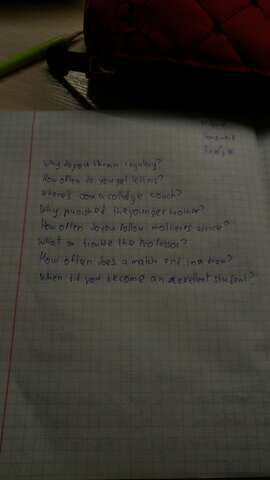 Why do you train regulary?
How often do you get letters?
Where's com a college coach?
Why punished the younger brother?
How often do you follow mother's advice?
What so trouble the professor?
How often does a match end in a draw?
When did you become an excellent student?